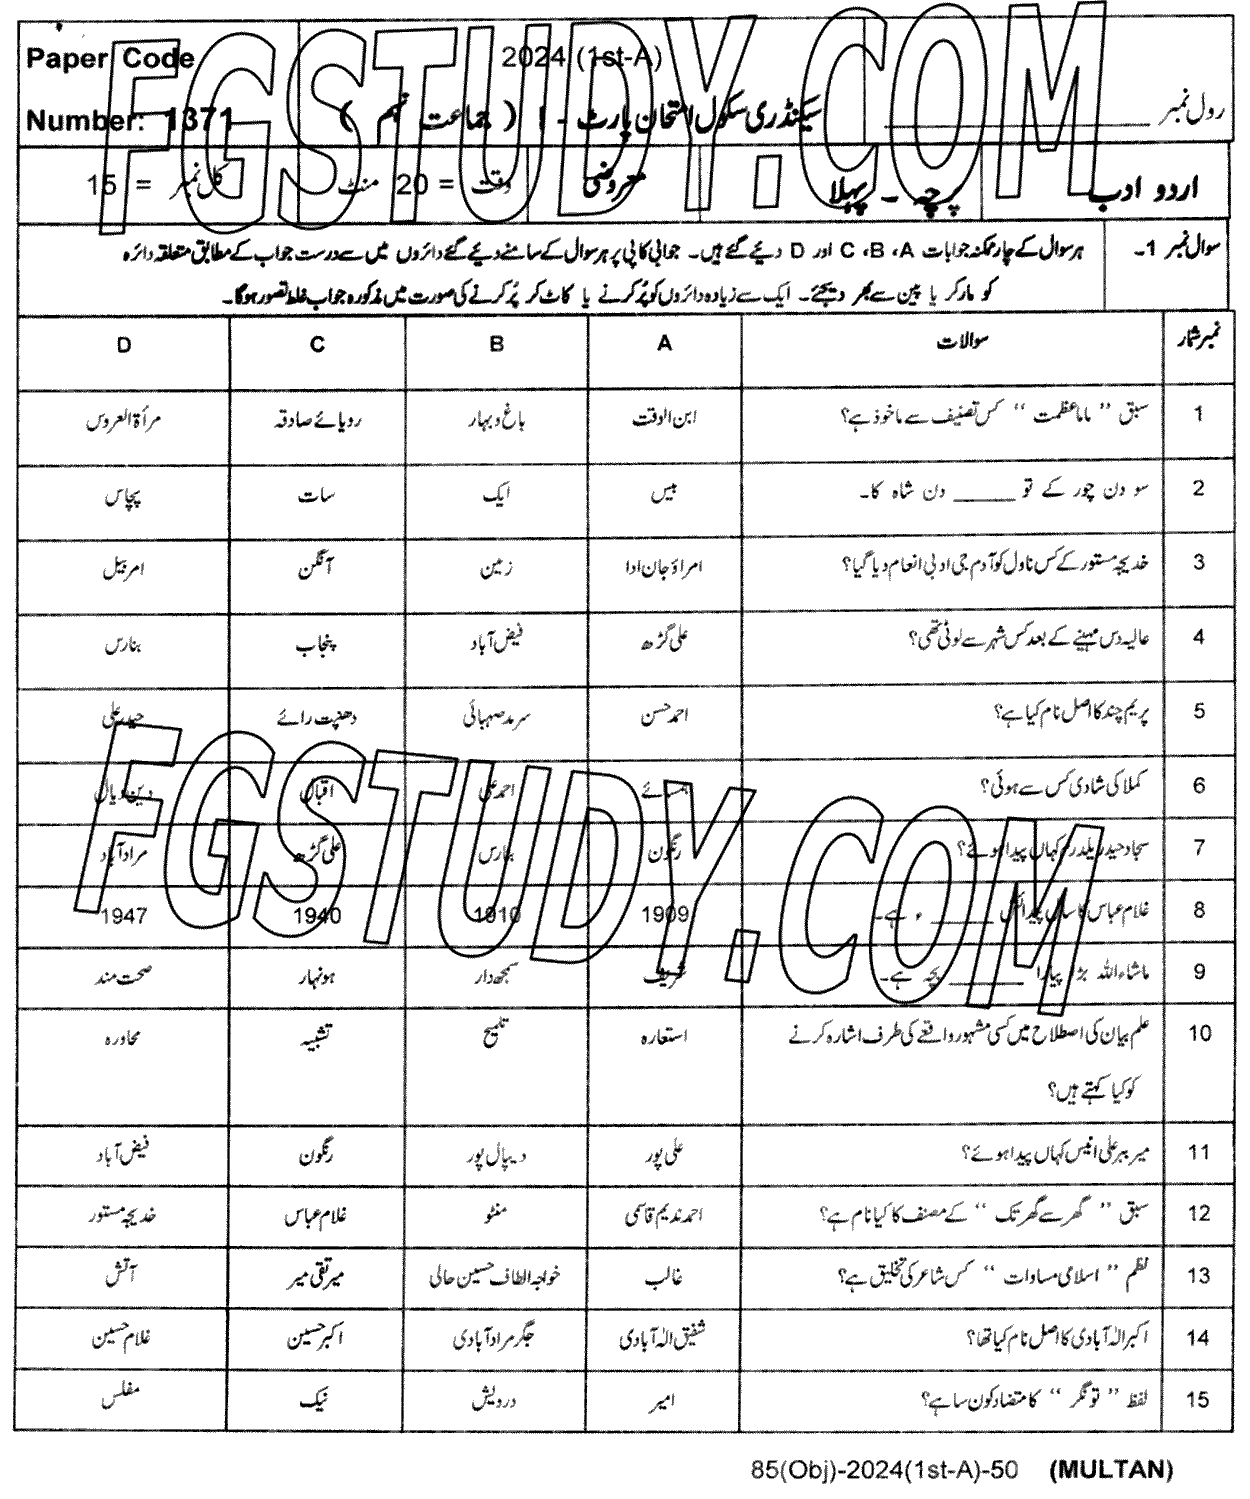 Paper Code 2024 (1st-A)
Number: 1371 سیکنڈری سکول امتحان پارٹ - I ( جماعت نہم ) رول نمبر
اردو ادب پرچہ - پہلا معروضی وقت = 20 منٹ کل نمبر = 15
سوال نمبر 1۔ ہر سوال کے چار ممکنہ جوابات A، B، C اور D دیئے گئے ہیں۔ جوابی کاپی پر ہر سوال کے سامنے دیئے گئے دائروں میں سے درست جواب کے مطابق متعلقہ دائرہ
کو مارکر یا پین سے بھر دیجئے۔ ایک سے زیادہ دائروں کو پُر کرنے یا کاٹ کر پُر کرنے کی صورت میں مذکورہ جواب غلط تصور ہوگا۔
نمبر شمار سوالات A B C D
1 سبق " ماما عظمت " کس تصنیف سے ماخوذ ہے؟ ابن الوقت باغ و بہار رویائے صادقہ مرأۃ العروس
2 سو دن چور کے تو ______ دن شاہ کا۔ بیس ایک سات پچاس
3 خدیجہ مستور کے کس ناول کو آدم جی ادبی انعام دیا گیا؟ امراؤ جان ادا زمین آنگن امربیل
4 عالیہ دس مہینے کے بعد کس شہر سے لوٹی تھی؟ علی گڑھ فیض آباد پنجاب بنارس
5 پریم چند کا اصل نام کیا ہے؟ احمد حسن سرمد صہبائی دھنپت رائے حیدر علی
6 کملا کی شادی کس سے ہوئی؟ احمد علی اقبال دین دیال
7 سجاد حیدر یلدرم کہاں پیدا ہوئے؟ رنگون بنارس علی گڑھ مراد آباد
8 غلام عباس کا سالِ پیدائش ______ ء ہے۔ 1909 1910 1940 1947
9 ماشاءاللہ بڑا پیارا ______ بچہ ہے۔ شریف سمجھ دار ہونہار صحت مند
10 علم بیان کی اصطلاح میں کسی مشہور واقعے کی طرف اشارہ کرنے استعارہ تلمیح تشبیہ محاورہ
کو کیا کہتے ہیں؟
11 میر ببر علی انیس کہاں پیدا ہوئے؟ علی پور دیپال پور رنگون فیض آباد
12 سبق " گھر سے گھر تک " کے مصنف کا کیا نام ہے؟ احمد ندیم قاسمی منٹو غلام عباس خدیجہ مستور
13 نظم " اسلامی مساوات " کس شاعر کی تخلیق ہے؟ غالب خواجہ الطاف حسین حالی میر تقی میر آتش
14 اکبر الٰہ آبادی کا اصل نام کیا تھا؟ شفیق الٰہ آبادی جگر مراد آبادی اکبر حسین غلام حسین
15 لفظ " تونگر " کا متضاد کون سا ہے؟ امیر درویش نیک مفلس
85(Obj)-2024(1st-A)-50 (MULTAN)
FGSTUDY.COM
FGSTUDY.COM